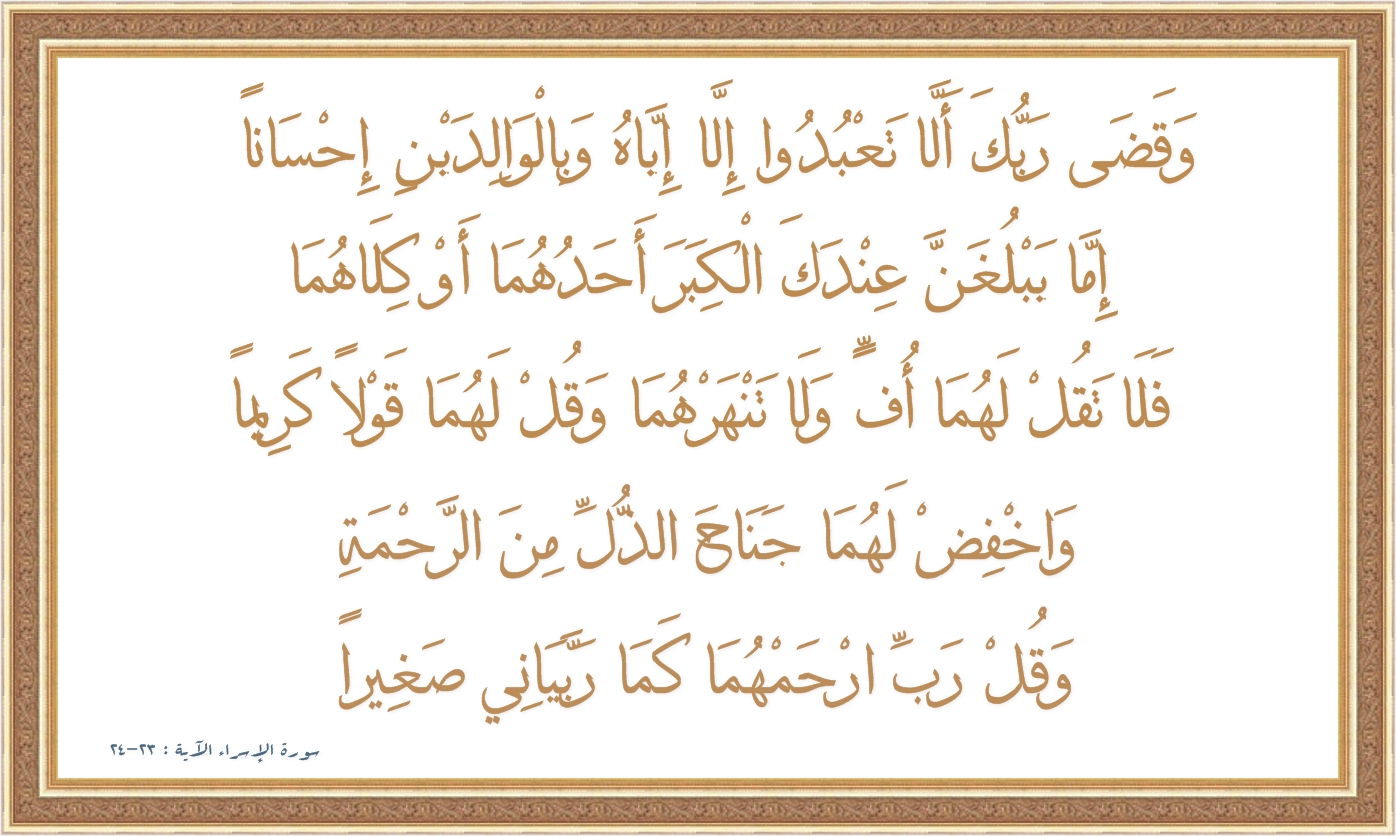 وَقَضَى رَبُّكَ أَلَّا تَعْبُدُوا إِلَّا إِيَّاهُ وَبِالْوَالِدَيْنِ إِحْسَاناً
إِمَّا يَبْلُغَنَّ عِنْدَكَ الْكِبَرَ أَحَدُهُمَا أَوْ كِلَاهُمَا
فَلَا تَقُلْ لَهُمَا أُفٍّ وَلَا تَنْهَرْهُمَا وَقُلْ لَهُمَا قَوْلاً كَرِيماً
وَاخْفِضْ لَهُمَا جَنَاحَ الذُّلِّ مِنَ الرَّحْمَةِ
وَقُلْ رَبِّ ارْحَمْهُمَا كَمَا رَبَّيَانِي صَغِيراً
سورة الإسراء الآية : ٢٣-٢٤